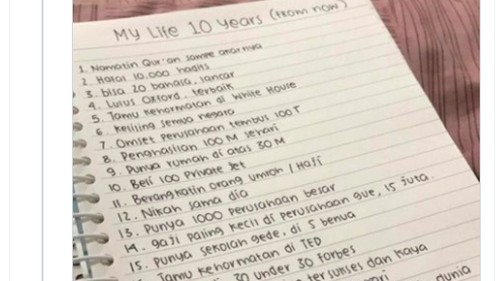 My Life 10 years (from now)
1. Namatin Qur'an sampe
2. Hafal 10.000 hadits
3. bisa 20 bahasa, lancar
4. Lulus Oxford, terbaik
5. Tamu kehormatan di White House
6. keliling semua negara
7. Omset perusahaan tembus 100 T
8. Penghasilan 100 M sehari
9. Punya rumah di atas 30 M
10. Beli 100 Private Jet
11. Berangkatin orang umroh / Haji
12. Nikah sama dia
13. Punya 1000 perusahaan besar
14. gaji paling kecil di perusahaan gue, 15 juta.
15. punya sekolah gede, di 5 benua
Tamu kehormatan di TED
30 under 30 forbes
ter sukses dan kaya
dunia